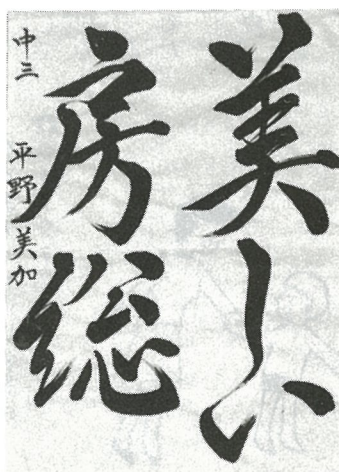 美しい
房総
中三 平野美加